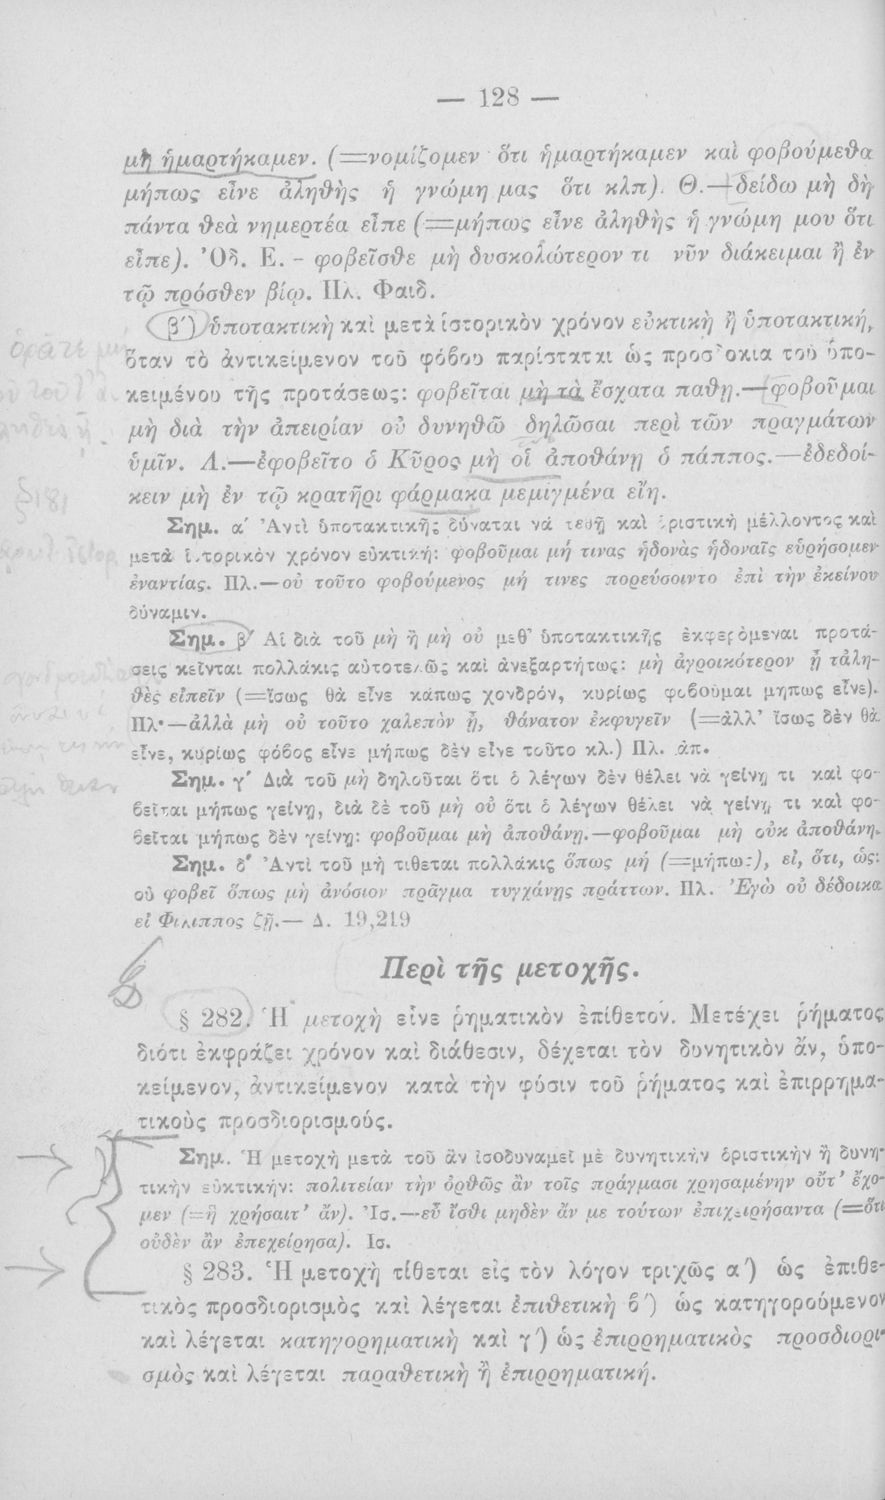 — 128 —
μὴ ἡμαρτήκαμεν. (=νομίζομεν ὅτι ἡμαρτήκαμεν καὶ φοβούμεθα
μήπως εἶνε ἀληθὴς ἡ γνώμη μας ὅτι κλπ). Θ.—δείδω μὴ δὴ
πάντα θεὰ νημερτέα εἶπε (=μήπως εἶνε ἀληθὴς ἡ γνώμη μου ὅτι
εἶπε). Ὀδ. Ε. - φοβεῖσθε μὴ δυσκολώτερον τι νῦν διάκειμαι ἢ ἐν
τῷ πρόσθεν βίῳ. Πλ. Φαιδ.
β´) ὑποτακτικὴ καὶ μετὰ ἱστορικὸν χρόνον εὐκτικὴ ἢ ὑποτακτική,
ὅταν τὸ ἀντικείμενον τοῦ φόβου παρίσταται ὡς προσδοκια τοῦ ὑπο-
κειμένου τῆς προτάσεως: φοβεῖται μὴ τὰ ἔσχατα παθῃ.—φοβοῦμαι
μὴ διὰ τὴν ἀπειρίαν οὐ δυνηθῶ δηλῶσαι περὶ τῶν πραγμάτων
ὑμῖν. Λ.—ἐφοβεῖτο ὁ Κῦρος μὴ οἱ ἀποθάνῃ ὁ πάππος.—ἐδεδοί-
κειν μὴ ἐν τῷ κρατῆρι φάρμακα μεμιγμένα εἴη.
Σημ. α´ Ἀντὶ ὑποτακτικῆς δύναται νά τεθῇ καὶ ὁριστικὴ μέλλοντος καὶ
μετὰ ἱστορικὸν χρόνον εὐκτικὴ: φοβοῦμαι μή τινας ἡδονὰς ἡδοναῖς εὑρήσομεν
ἐναντίας. Πλ.—οὐ τοῦτο φοβούμενος μή τινες πορεύσοιντο ἐπὶ τὴν ἐκείνου
δύναμιν.
Σημ. β´ Αἱ διὰ τοῦ μὴ ἢ μὴ οὐ μεθ' ὑποτακτικῆς ἐκφερόμεναι προτά-
σεις κεῖνται πολλάκις αὐτοτελῶς καὶ ἀνεξαρτήτως: μὴ ἀγροικότερον ᾖ τἀλη-
θὲς εἰπεῖν (=ἴσως θὰ εἶνε κάπως χονδρόν, κυρίως φοβοῦμαι μηπως εἶνε).
Πλ·—ἀλλὰ μὴ οὐ τοῦτο χαλεπὸν ᾖ, θάνατον ἐκφυγεῖν (=ἀλλ' ἴσως δὲν θὰ
εἶνε, κυρίως φόβος εἶνε μήπως δὲν εἶνε τοῦτο κλ.) Πλ. ἀπ.
Σημ. γ´ Διὰ τοῦ μὴ δηλοῦται ὅτι ὁ λέγων δὲν θέλει νὰ γείνῃ τι καὶ φο-
βεῖται μήπως γείνῃ, διὰ δὲ τοῦ μὴ οὐ ὅτι ὁ λέγων θέλει νὰ γείνῃ τι καὶ φο-
βεῖται μήπως δὲν γείνῃ: φοβοῦμαι μὴ ἀποθάνῃ.—φοβοῦμαι μὴ οὐκ ἀποθάνῃ.
Σημ. δ´ Ἀντὶ τοῦ μὴ τιθεται πολλάκις ὅπως μή (=μήπως), εἰ, ὅτι, ὡς:
οὐ φοβεῖ ὅπως μὴ ἀνόσιον πρᾶγμα τυγχάνῃς πράττων. Πλ. Ἐγὼ οὐ δέδοικα
εἰ Φιλιππος ζῇ.— Δ. 19,219
Περὶ τῆς μετοχῆς.
§ 282. Ἡ μετοχὴ εἶνε ῥηματικὸν ἐπίθετον. Μετέχει ῥήματος
διότι ἐκφράζει χρόνον καὶ διάθεσιν, δέχεται τὸν δυνητικὸν ἄν, ὑπο-
κείμενον, ἀντικείμενον κατὰ τὴν φύσιν τοῦ ῥήματος καὶ ἐπιρρημα-
τικοὺς προσδιορισμούς.
Σημ. Ἡ μετοχὴ μετὰ τοῦ ἂν ἰσοδυναμεῖ μὲ δυνητικὴν ὁριστικὴν ἢ δυνη-
τικὴν εὐκτικήν: πολιτείαν τὴν ὀρθῶς ἂν τοῖς πράγμασι χρησαμένην οὔτ' ἔχο-
μεν (=ἣ χρήσαιτ' ἄν). Ἰσ.—εὖ ἴσθι μηδὲν ἄν με τούτων ἐπιχειρήσαντα (=ὅτι
οὐδὲν ἂν ἐπεχείρησα). Ισ.
§ 283. Ἡ μετοχὴ τίθεται εἰς τὸν λόγον τριχῶς α´) ὡς ἐπιθε-
τικὸς προσδιορισμὸς καὶ λέγεται ἐπιθετικὴ β´) ὡς κατηγορούμενον
καὶ λέγεται κατηγορηματικὴ καὶ γ´) ὡς ἐπιρρηματικὸς προσδιορι-
σμὸς καὶ λέγεται παραθετικὴ ἢ ἐπιρρηματική.